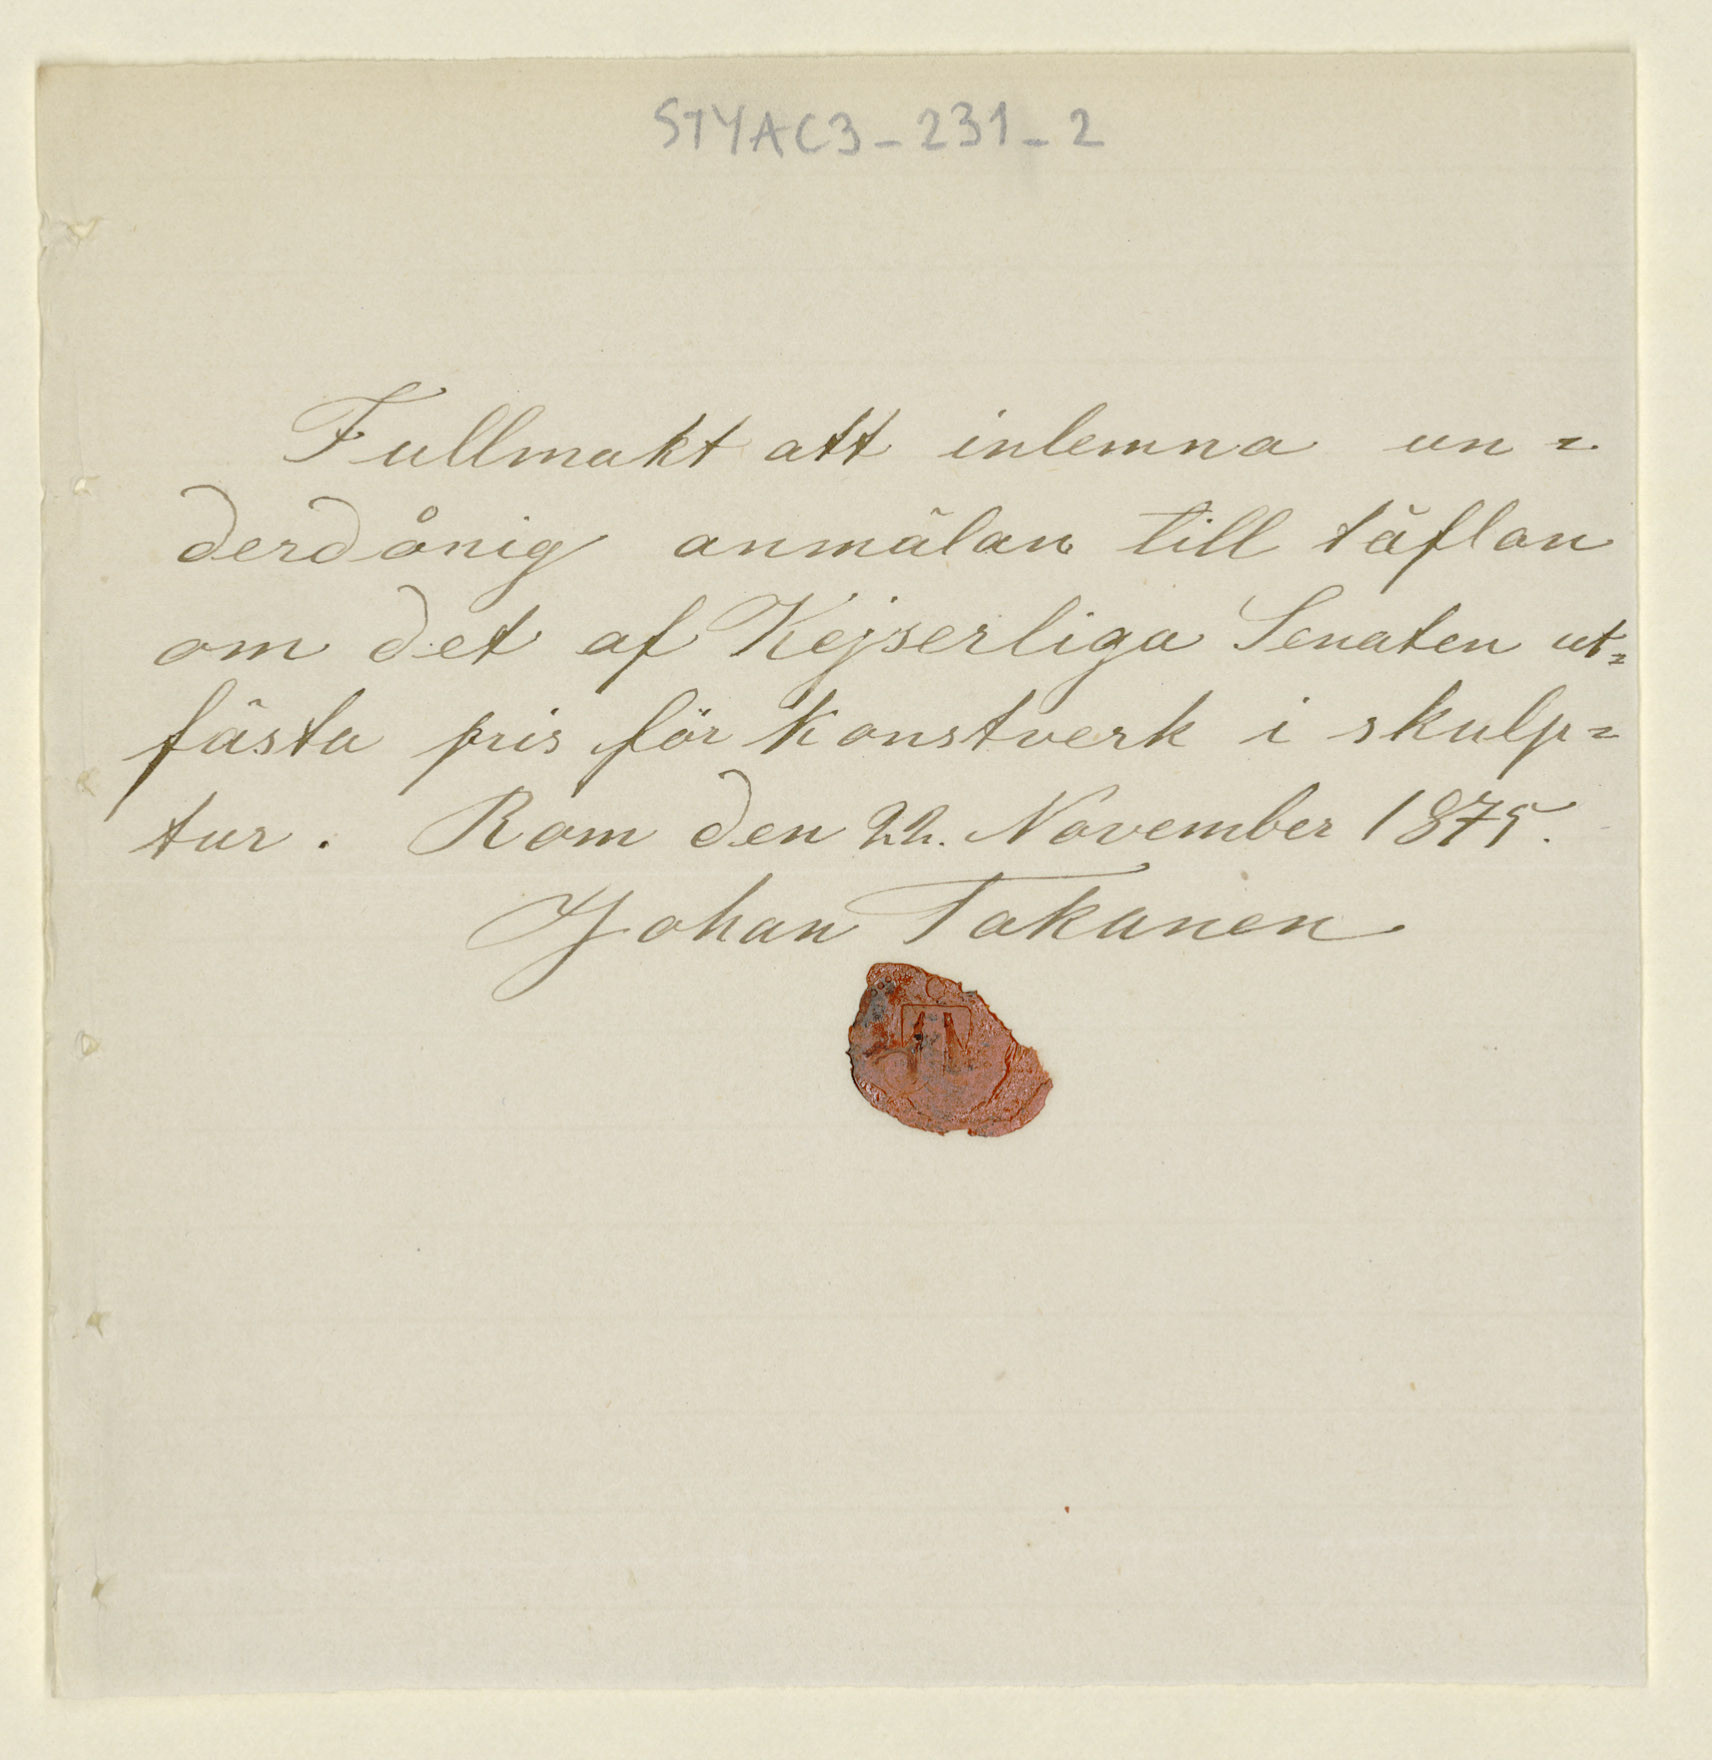 STYAC3-231-2
Fullmakt att inlemna un=
derdånig anmälan till täflan
om det af Kejserliga Senaten ut=
fästa pris för Konstverk i skulp=
tur. Rom den 22. November 1875.
Johan Takanen